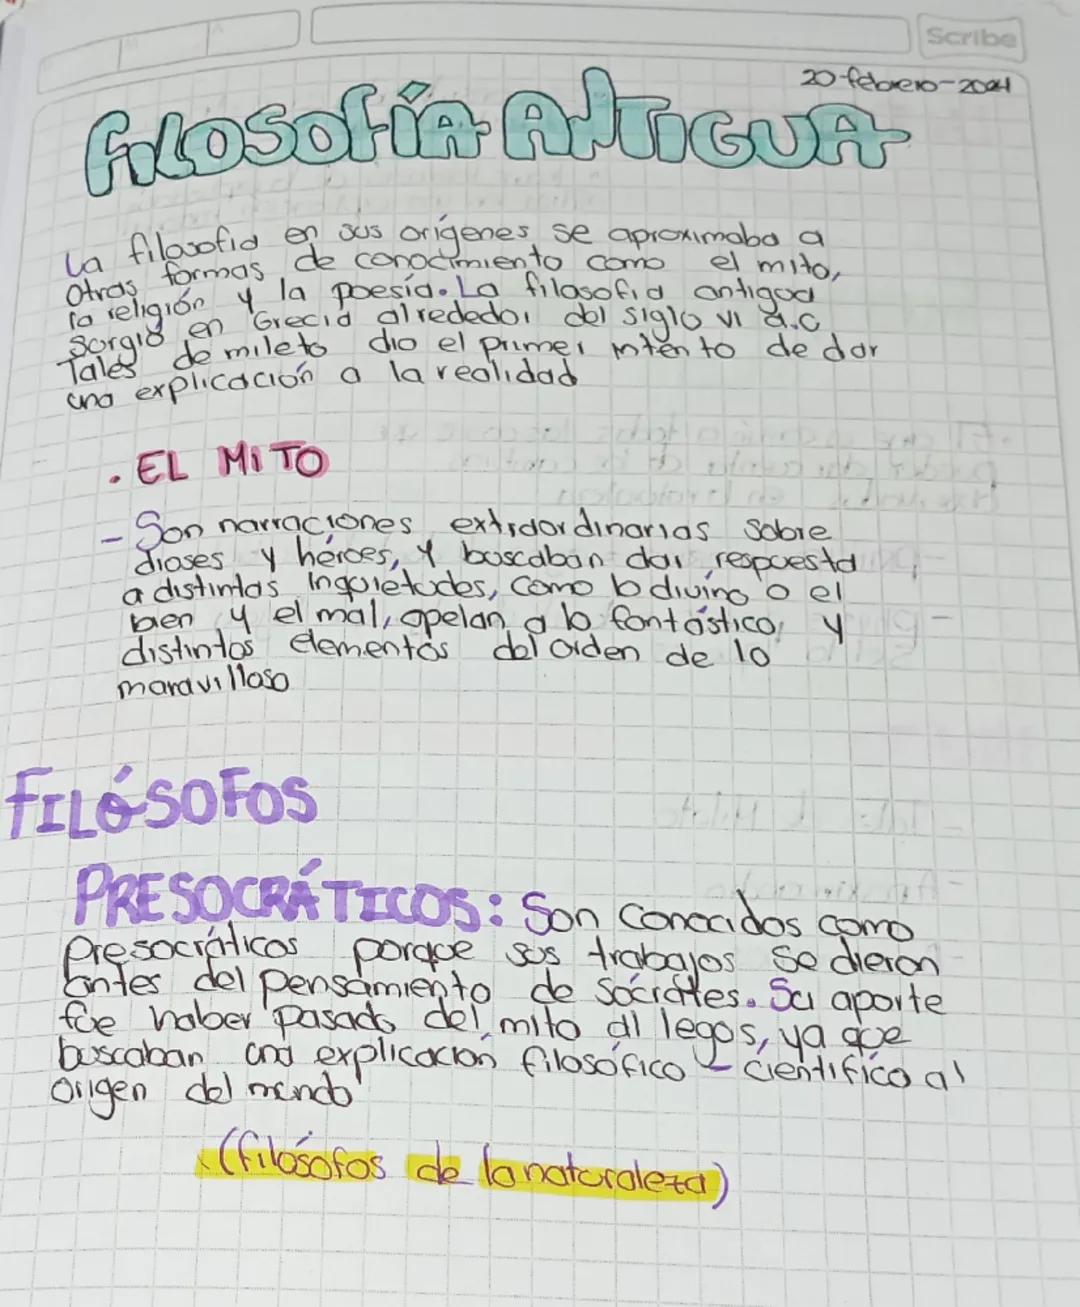 Scribe
20-febrero-2024
FILOSOFÍA ANTIGUA
La filosofía en sus orígenes se aproximaba a
otras formas de conocimiento como el mito,
la religión y la poesía. La filosofía antigua
surgió en Grecia alrededor del siglo VI a.c
Tales de mileto dio el primer intento de dar
una explicación a la realidad
. EL MITO
- Son narraciones extraordinarias sobre
dioses y héroes, y buscaban dar respuesta
a distintas inquietudes, como lo divino o el
bien y el mal, apelan a lo fantástico, y
distintos elementos del orden de lo
maravilloso
FILÓSOFOS
PRESOCRÁTICOS: Son conocidos como
presocráticos porque sus trabajos se dieron
antes del pensamiento de Sócrates. Su aporte
fue haber pasado del mito al legos, ya que
buscaban una explicación filosófico - científico al
origen del mundo
(filósofos de la naturaleza)